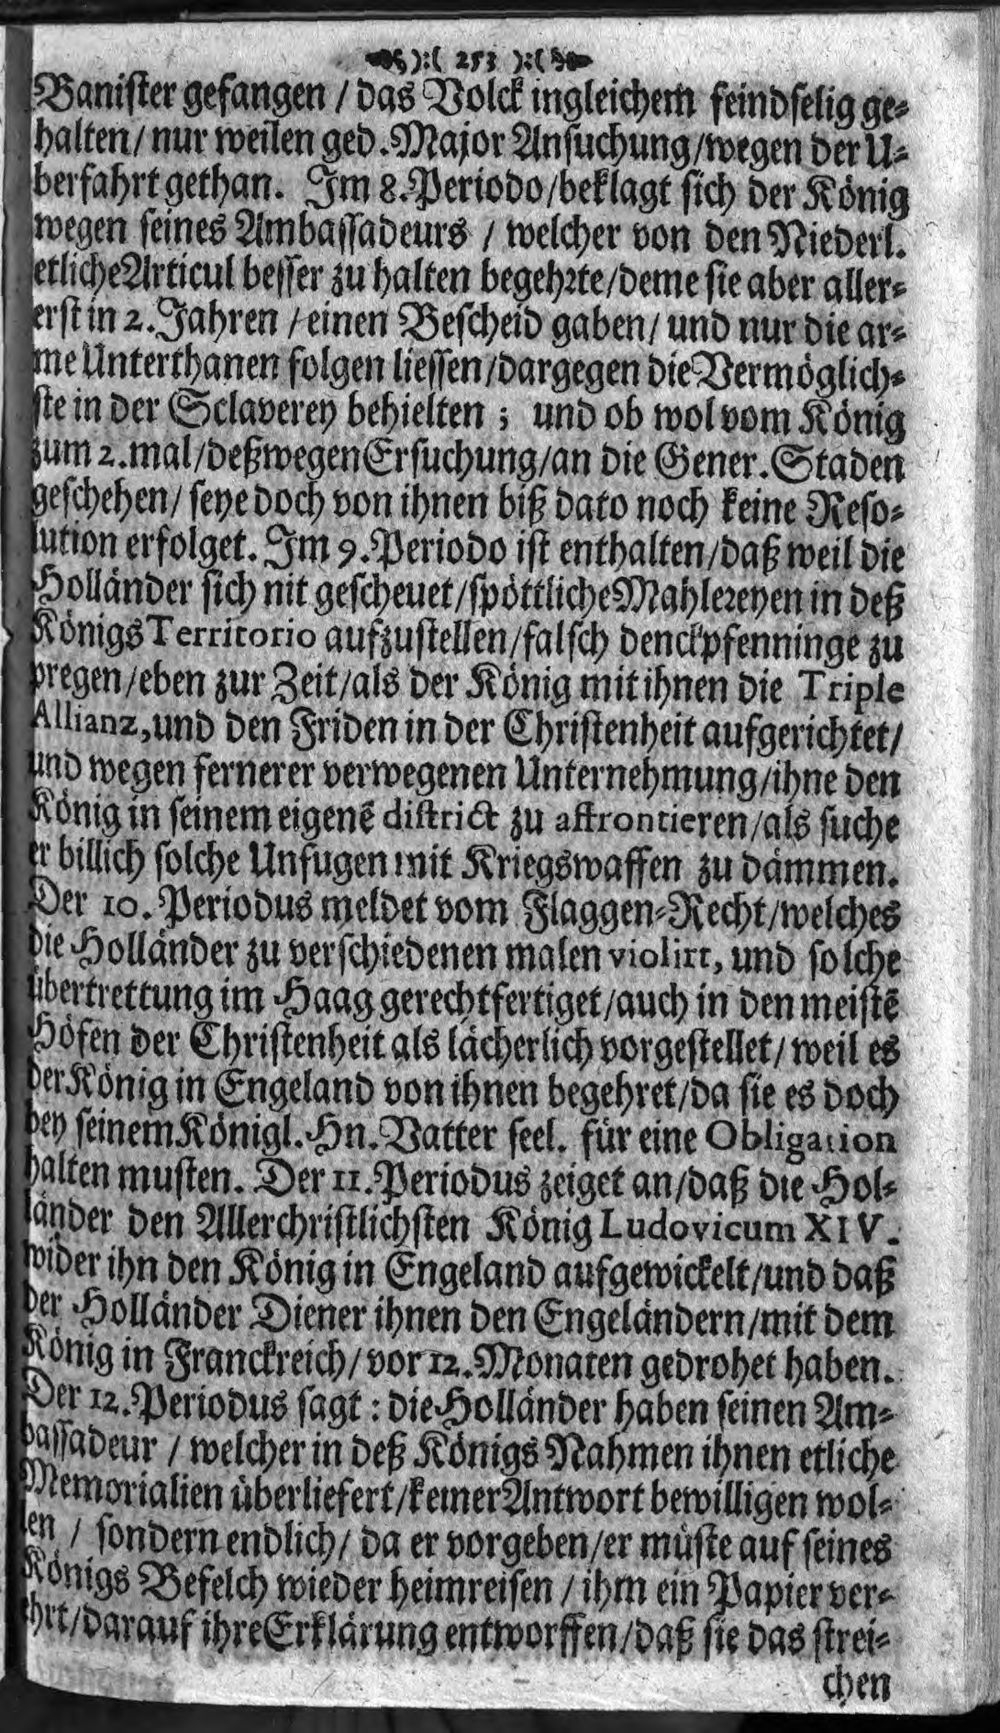 ):( 253 ):(
Banister gefangen / das Volck ingleichem feindselig ge-
halten/ nur weilen ged. Major Ansuchung/wegen der U-
berfahrt gethan. Im 8. Periodo/beklagt sich der König
wegen seines Ambassadeurs / welcher von den Niederl.
etliche Articul besser zu halten begehrte/deme sie aber aller-
erst in 2. Jahren / einen Bescheid gaben/ und nur die ar-
me Unterthanen folgen liessen/dargegen die Vermöglich-
ste in der Sclaverey behielten ; und ob wol vom König
zum 2.mal/deßwegen Ersuchung/an die Gener. Staden
geschehen/ seye doch von ihnen biß dato noch keine Reso-
lution erfolget. Im 9. Periodo ist enthalten/daß weil die
Holländer sich nit gescheuet/spöttliche Mahlereyen in deß
Königs Territorio aufzustellen/falsch denckpfenninge zu
pregen/eben zur Zeit/als der König mit ihnen die Triple
Allianz, und den Friden in der Christenheit aufgerichtet/
und wegen fernerer verwegenen Unternehmung/ihne den
König in seinem eigenē district zu affrontieren/als suche
er billich solche Unfugen mit Kriegswaffen zu dämmen.
Der 10. Periodus meldet vom Flaggen-Recht/welches
die Holländer zu verschiedenen malen violirt, und solche
übertrettung im Haag gerechtfertiget/auch in den meistē
Höfen der Christenheit als lächerlich vorgestellet/ weil es
der König in Engeland von ihnen begehret/da sie es doch
bey seinem Königl. Hn. Vatter seel. für eine Obligation
halten musten. Der 11. Periodus zeiget an/daß die Hol-
länder den Allerchristlichsten König Ludovicum XIV.
wider ihn den König in Engeland aufgewickelt/und daß
der Holländer Diener ihnen den Engeländern/mit dem
König in Franckreich/ vor 12. Monaten gedrohet haben.
Der 12. Periodus sagt : die Holländer haben seinen Am-
bassadeur / welcher in deß Königs Nahmen ihnen etliche
Memorialien überliefert/keiner Antwort bewilligen wol-
len / sondern endlich/ da er vorgeben/er müste auf seines
Königs Befelch wieder heimreisen / ihm ein Papier ver-
ehrt/darauf ihre Erklärung entworffen/daß sie das strei-
chen